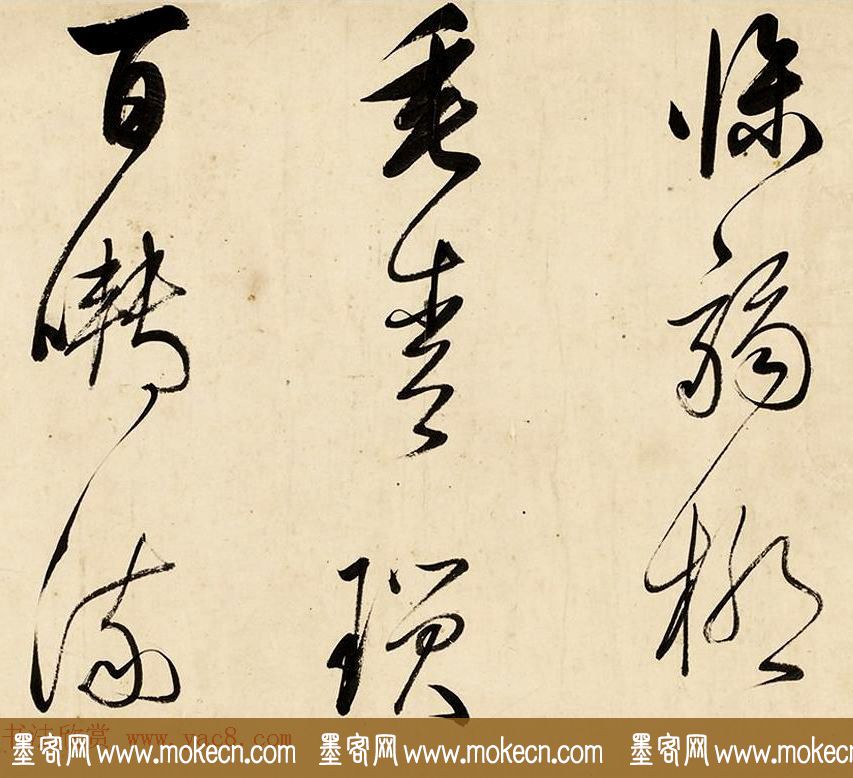 條弱柳
垂青瑣
百囀流
书法欣赏 www.yac8.com
墨客网 www.mokecn.com 墨客网 www.mokecn.com 墨客网 www.mokecn.com